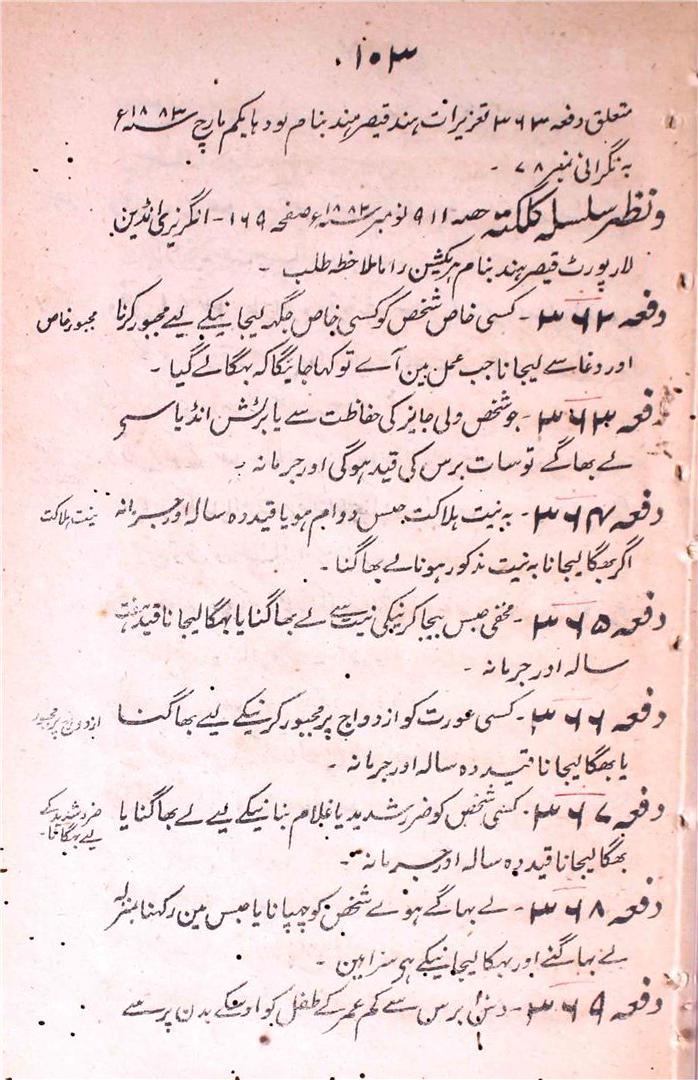 ۱۰۳
متعلق دفعہ ۳۶۳ تعزیرات ہند قیصر ہند بنام بودہا یکم مارچ ۱۸۸۳ء
بہ نگرانی نمبر ۷۸ -
و نظیر سلسلہ کلکتہ حصہ ۱۱ ۹ نومبر ۱۸۸۳ء صفحہ ۱۶۹ - انگریزی انڈین
لا رپورٹ قیصر ہند بنام ہرکشن راما ملاحظہ طلب -
دفعہ ۳۶۲ - کسی خاص شخص کو کسی خاص جگہہ لیجانیکے لیے مجبور کرنا
مجبور خاص
اور دغا سے لیجانا جب عمل مین آے تو کہا جائیگا کہ بہگا لے گیا -
دفعہ ۳۶۳ - جو شخص ولی جایز کی حفاظت سے یا برٹش انڈیا سے
لے بھاگے تو سات برس کی قید ہوگی اور جرمانہ -
دفعہ ۳۶۴ - بہ نیت ہلاکت حبس دوام ہو یا قید دہ سالہ اور جرمانہ
بنیت ہلاکت
اگر بھگا لیجانا بہ نیت مذکور ہونا لے بھاگنا -
دفعہ ۳۶۵ - مخفی حبس بیجا کرنیکی نیت سے لے بھاگنا یا بہگا لیجانا قید ہفت
سالہ اور جرمانہ -
دفعہ ۳۶۶ - کسی عورت کو ازدواج پر مجبور کرنیکے لیے بھاگنا
ازدواج پر مجبور
یا بھگا لیجانا قید دہ سالہ اور جرمانہ -
دفعہ ۳۶۷ - کسی شخص کو ضرر شدید یا غلام بنانیکے لیے لے بھاگنا یا
ضرر شدید کے
لیے بہگانا -
بھگا لیجانا قید دہ سالہ اور جرمانہ -
دفعہ ۳۶۸ - لے بہاگے ہوے شخص کو چھپانا یا حبس مین رکہنا بمنزلہ
لے بہاگنے اور بہگا لیجانیکے ہی سزا ہین -
دفعہ ۳۶۹ - دس برس سے کم عمر کے طفل کو اوسکے بدن پر سے